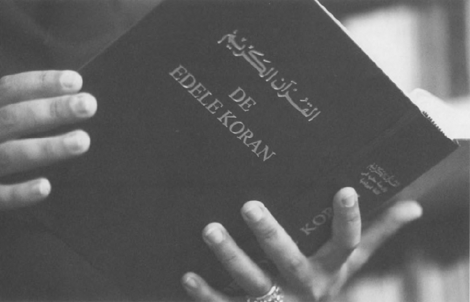 القرآن الكريم
DE
EDELE KORAN
KOR